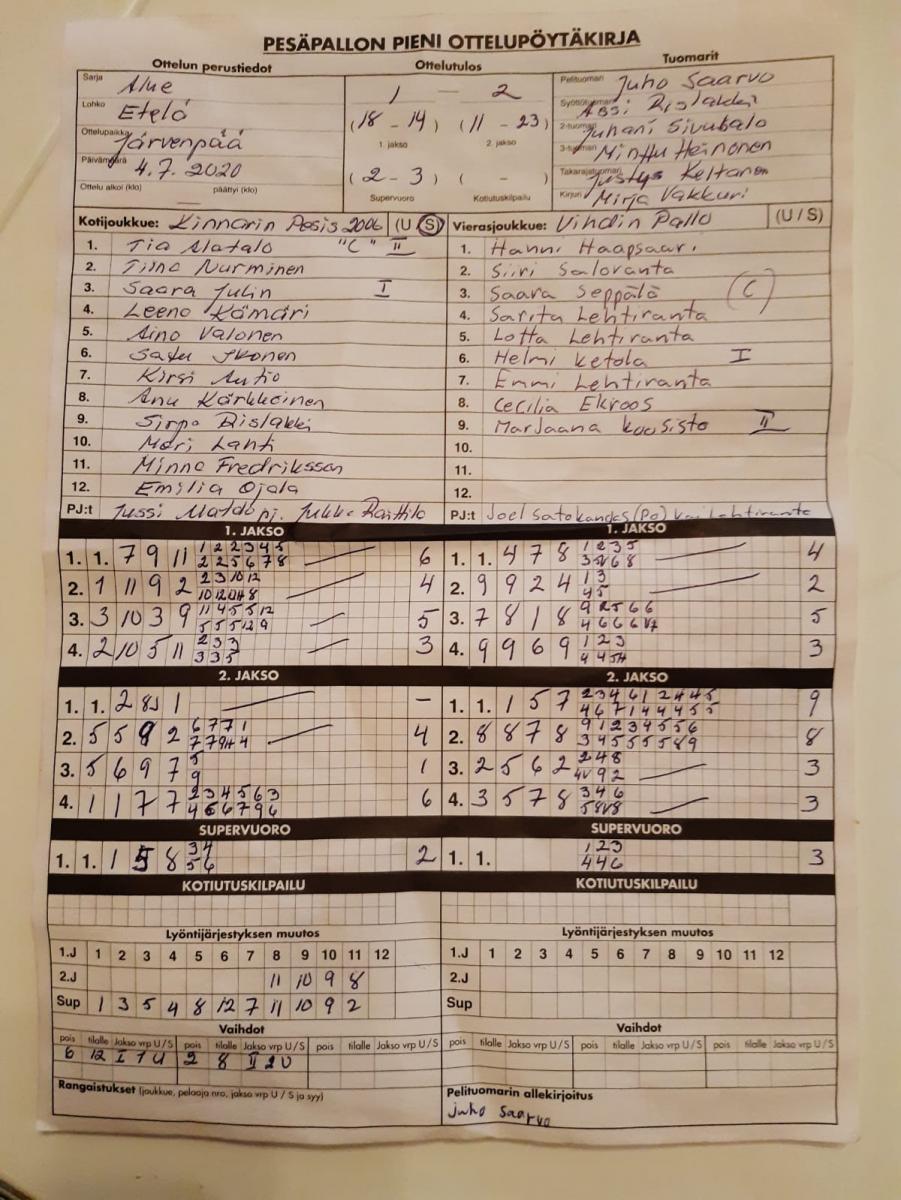 PESÄPALLON PIENI OTTELUPÖYTÄKIRJA
Ottelun perustiedot
Ottelutulos
Tuomarit
Sarja Alue
Lohko Etelä
Ottelupaikka Järvenpää
Päivämäärä 4.7.2020
Ottelu alkoi (klo) päättyi (klo)
1 — 2
(18 - 14) (11 - 23)
1. jakso 2. jakso
(2 - 3) ( - )
Supervuoro Kotiutuskilpailu
Pelituomari Juho Saarvo
Syöttötuomari Rislakki
2-tuomari Juhani
3-tuomari Minttu Heinonen
Takarajatuomari Keltanen
Kirjuri Mirja Vakkuri
Kotijoukkue: Kinnarin Pesis 2006 (U/S)
1. Tia Alatalo "C" II
2. Tiina Nurminen
3. Saara Julin I
4. Leena Kämäri
5. Aino Valonen
6. Satu Ikonen
7. Kirsi Autio
8. Anu Kärkkäinen
9. Sirpa Rislakki
10. Mari Lahti
11. Minna Fredriksson
12. Emilia Ojala
PJ:t Jussi Alatalo pj. Jukka Raittila
Vierasjoukkue: Vihdin Pallo (U/S)
1. Hanni Haapsaari
2. Siiri Saloranta
3. Saara Seppälä (C)
4. Sarita Lehtiranta
5. Lotta Lehtiranta
6. Helmi Ketola I
7. Emmi Lehtiranta
8. Cecilia Ekroos
9. Marjaana Kuusisto II
10.
11.
12.
PJ:t Joel (Pe) Lehtiranta
1. JAKSO
1. 1. 7 9 11 1 2 2 3 4 5 6
2 2 5 6 7 8
2. 1 11 9 2 2 3 10 12 4
3. 3 10 3 9 11 4 5 5 12 5
5 5 5 12 9
4. 2 10 5 11 2 3 3 3
3 3 5
1. JAKSO
1. 1. 4 7 8 1 2 3 5 4
2. 9 9 2 4 1 3 2
4 5
3. 7 8 1 8 9 2 5 6 6 5
4. 9 9 6 9 1 2 3 3
2. JAKSO
1. 1. 2 8 1 –
2. 5 5 9 2 6 7 7 1 4
3. 5 6 9 7 5 1
9
4. 1 1 7 7 2 3 4 5 6 3 6
4 5 6 7 9 6
2. JAKSO
1. 1. 1 5 7 2 3 4 6 1 2 4 4 5 9
4 6 7 1 4 4 4 5 5
2. 8 8 7 8 9 1 2 3 4 5 5 6 8
3 4 5 5 5 5 8 9
3. 2 5 6 2 2 4 8 3
4V 9 2
4. 3 5 7 8 3 4 6 3
SUPERVUORO
1. 1. 1 5 8 3 4 2
5 6
SUPERVUORO
1. 1. 1 2 3 3
4 4 6
KOTIUTUSKILPAILU
KOTIUTUSKILPAILU
Lyöntijärjestyksen muutos
1.J 1 2 3 4 5 6 7 8 9 10 11 12
2.J 11 10 9 8
Sup 1 3 5 4 8 12 7 11 10 9 2
Lyöntijärjestyksen muutos
1.J 1 2 3 4 5 6 7 8 9 10 11 12
2.J
Sup
Vaihdot
pois tilalle Jakso vrp U/S pois tilalle Jakso vrp U/S pois tilalle Jakso vrp U/S
6 12 I 1 U 2 8 II 2 U
Vaihdot
pois tilalle Jakso vrp U/S pois tilalle Jakso vrp U/S pois tilalle Jakso vrp U/S
Rangaistukset (joukkue, pelaaja nro, jakso vrp U / S ja syy)
Pelituomarin allekirjoitus
Juho Saarvo